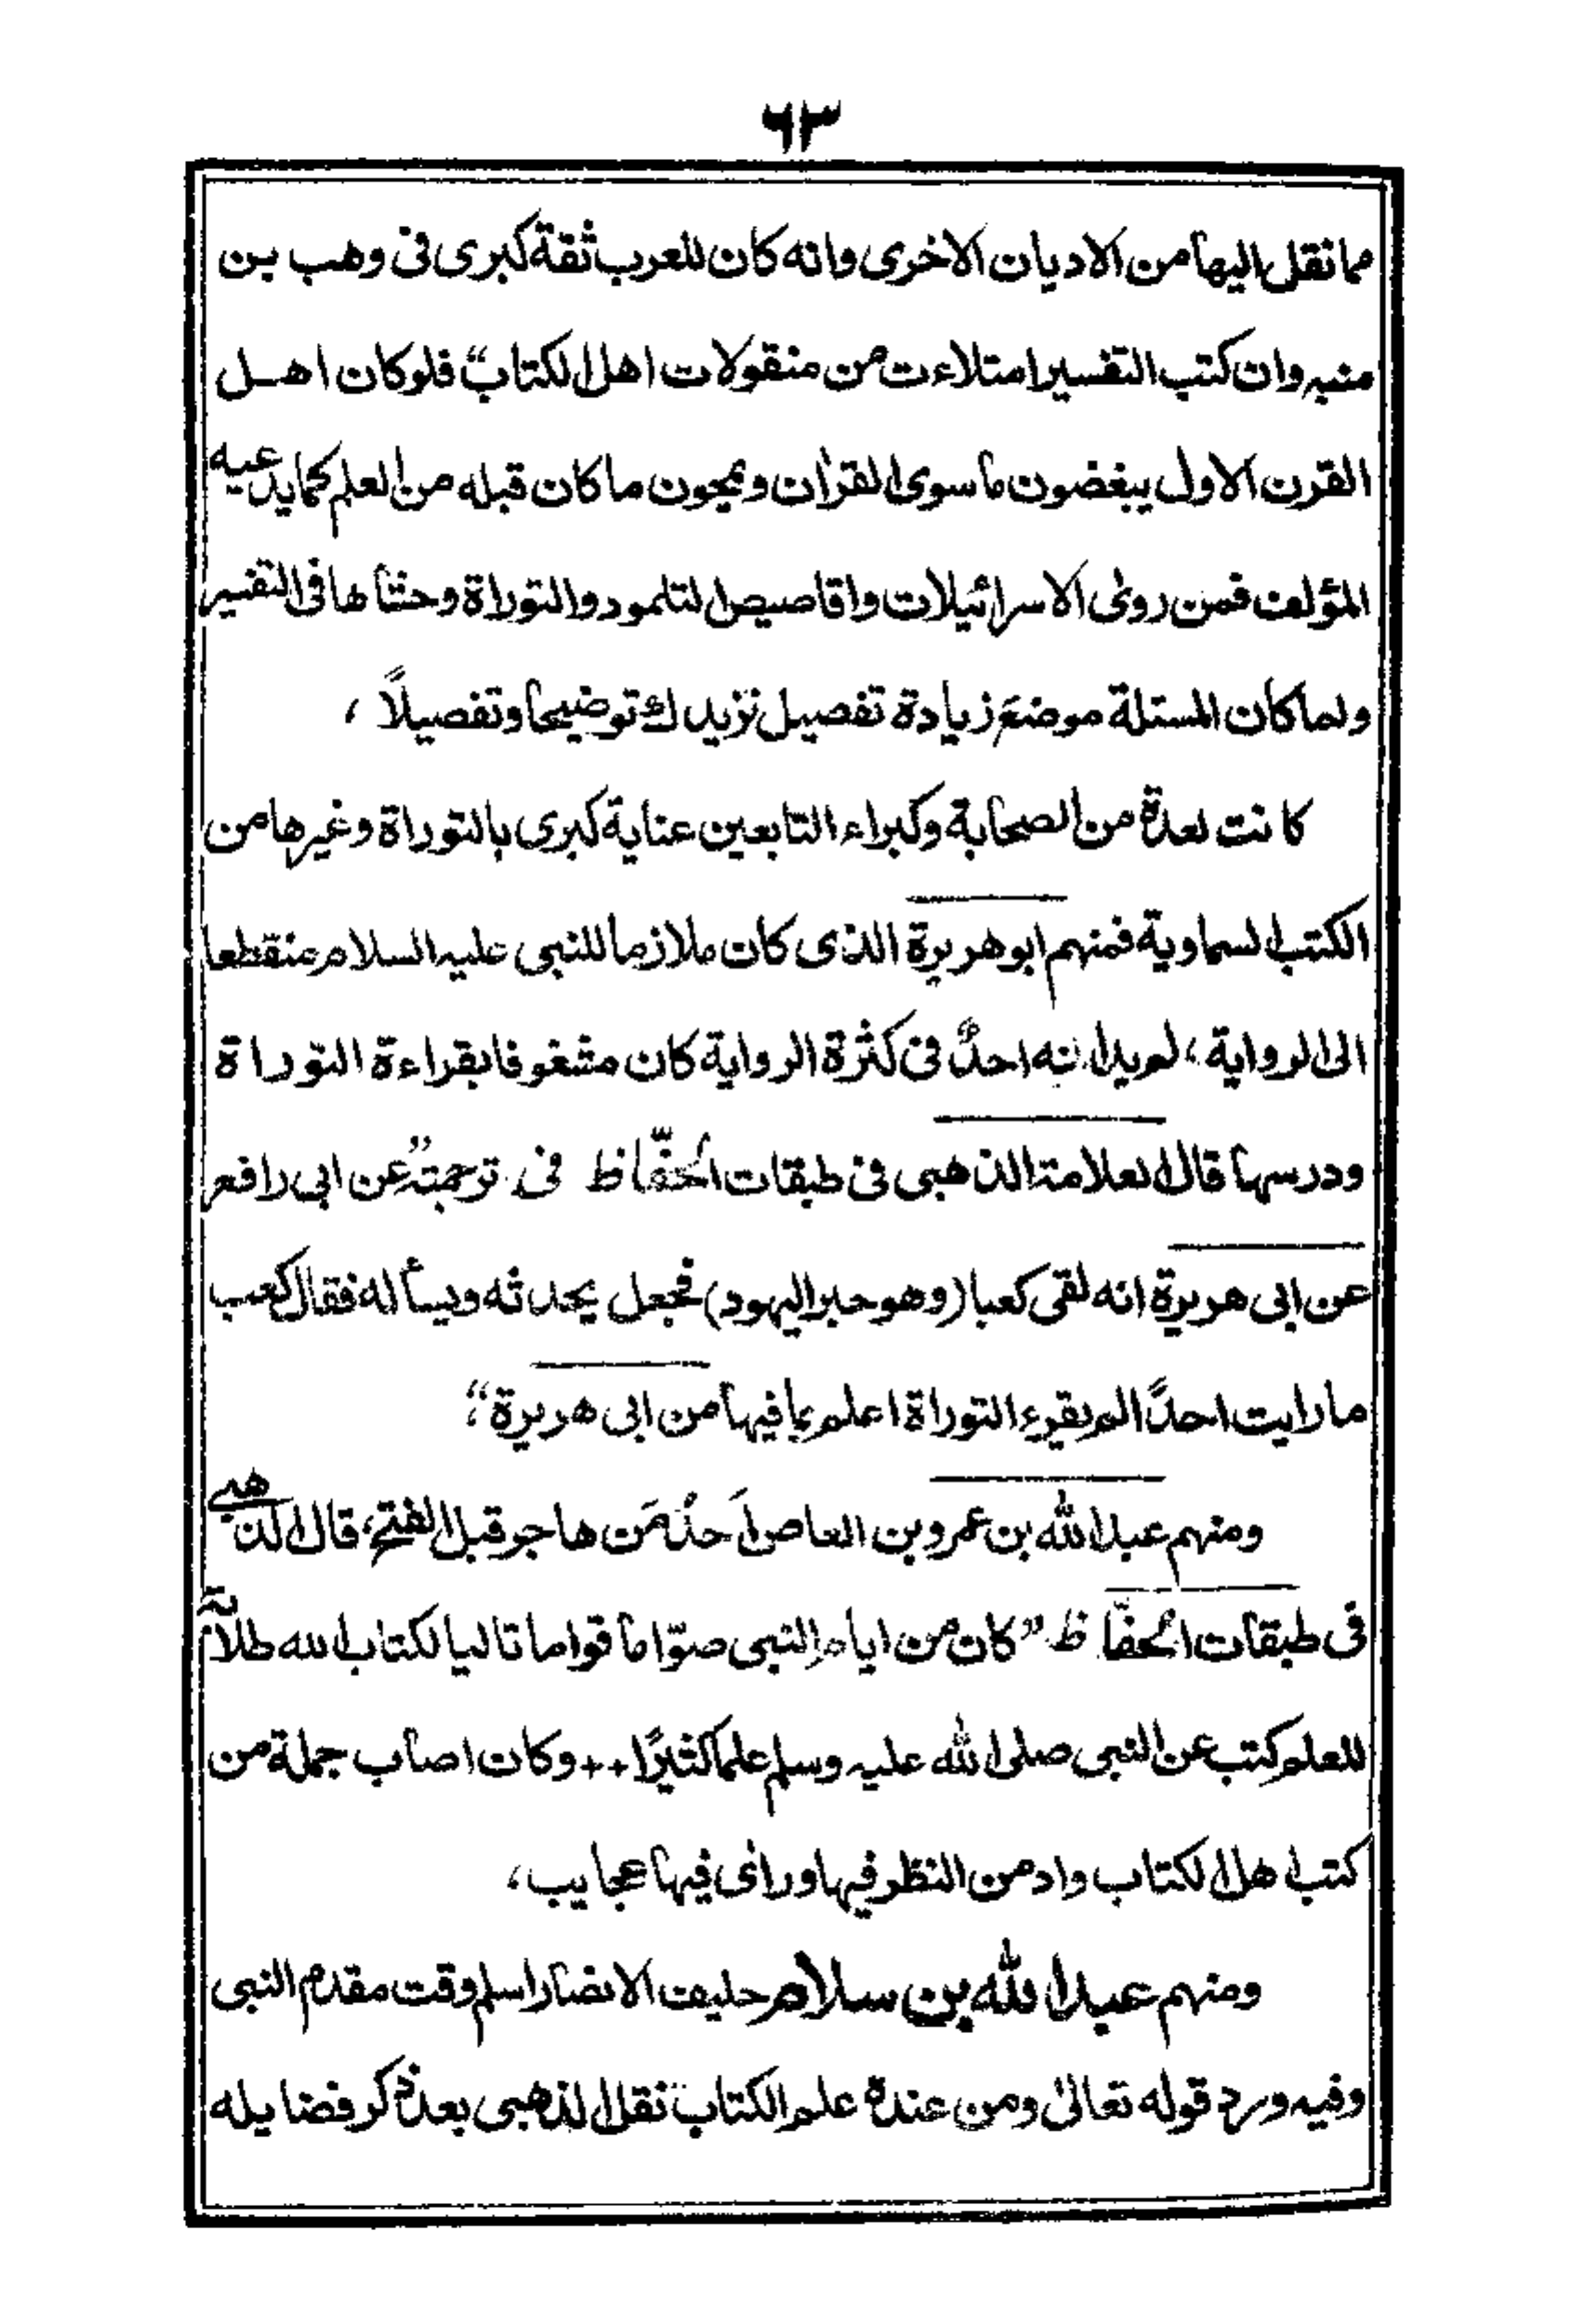 ٦٣
مما نقل اليها من الاديان الاخرى وانه كان للعرب ثقة كبرى فى وهب بن
منبه وان كتب التفسير امتلاءت من منقولات اهل الكتاب“ فلو كان اهل
القرن الاول يبغضون ما سوى القرٰان ويمحون ما كان قبله من العلم كما يدعيه
المؤلف فمن روى الاسرائيلات واقاصيص التلمود والتوراة وحشاها فى التفسير
ولما كان المسئلة موضع زيادة تفصيل نزيدك توضيحا وتفصيلاً ،
كانت لعدة من الصحابة وكبراء التابعين عناية كبرى بالتوراة وغيرها من
الكتب السماوية فمنهم ابو هريرة الذى كان ملازما للنبى عليه السلام منقطعا
الى الرواية ، لم يدانه احدٌ فى كثرة الرواية كان مشغوفا بقراءة التوراة
ودرسها قال العلامة الذهبى فى طبقات الحُفّاظ فى ترجمته ”عن ابى رافع
عن ابى هريرة انه لقى كعبا (وهو حبر اليهود) فجعل يحدثه ويسأله فقال كعب
ما رايت احدًا لم يقرء التوراة اعلم بما فيها من ابى هريرة“،
ومنهم عبد الله بن عمرو بن العاص اَحدُ مَن هاجر قبل الفتح، قال الذهبى
فى طبقات الحُفّاظ ”كان من ايام النبى صوّاما قواما تاليا لكتاب الله طلابة
للعلم كتب عن النبى صلى الله عليه وسلم علما كثيرًا ++ وكان اصاب جملة من
كتب اهل الكتاب وادمن النظر فيها وراٰى فيها عجايب،
ومنهم عبد الله بن سلام حليف الانصار اسلم وقت مقدم النبى
وفيه ورد قوله تعالىٰ ومن عندهٗ علم الكتاب نقل الذهبى بعد ذكر فضايله